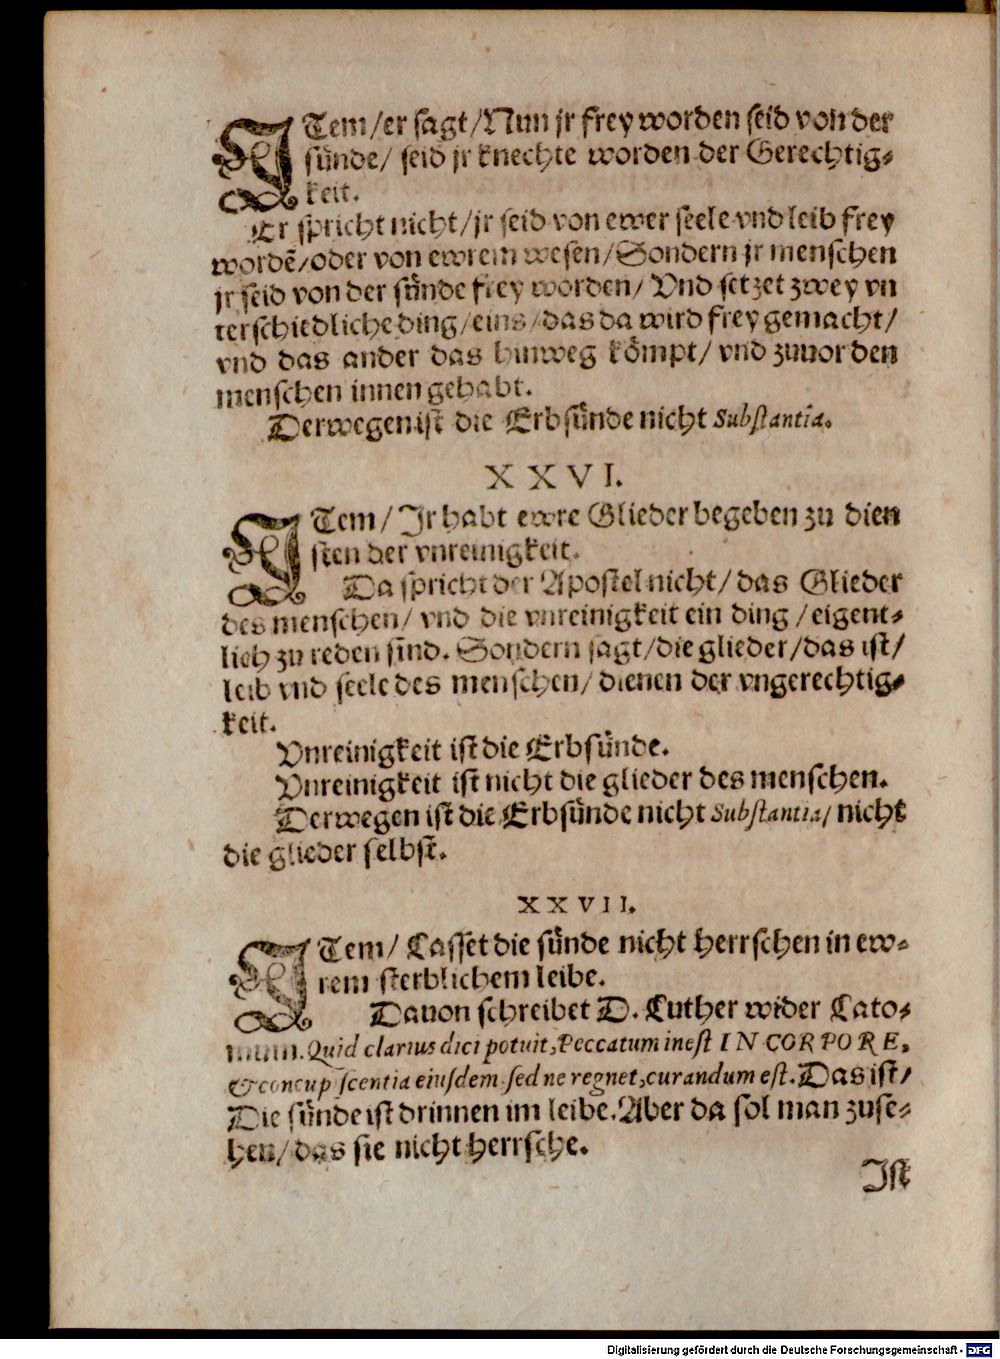 ITem/er sagt/Nun jr frey worden seid von der
sünde/ seid jr knechte worden der Gerechtig⸗
keit.
Er spricht nicht/jr seid von ewer seele vnd leib frey
wordē/oder von ewrem wesen/Sondern jr menschen
jr seid von der sünde frey worden/ Vnd setzet zwey vn
terschiedliche ding/eins/das da wird frey gemacht/
vnd das ander das hinweg kömpt/ vnd zuuor den
menschen innen gehabt.
Derwegen ist die Erbsünde nicht Substantia.
XXVI.
ITem/ Jr habt ewre Glieder begeben zu dien
sten der vnreinigkeit.
Da spricht der Apostel nicht/das Glieder
des menschen/ vnd die vnreinigkeit ein ding/eigent⸗
lich zu reden sind. Sondern sagt/die glieder/das ist/
leib vnd seele des menschen/ dienen der vngerechtig⸗
keit.
Vnreinigkeit ist die Erbsünde.
Vnreinigkeit ist nicht die glieder des menschen.
Derwegen ist die Erbsünde nicht Substantia/ nicht
die glieder selbst.
XXVII.
ITem/ Lasset die sünde nicht herrschen in ew⸗
rem sterblichem leibe.
Dauon schreibet D. Luther wider Lato⸗
mum. Quid clarius dici potuit, Peccatum inest IN CORPORE,
& concupiscentia eiusdem sed ne regnet, curandum est. Das ist/
Die sünde ist drinnen im leibe. Aber da sol man zuse⸗
hen/ das sie nicht herrsche.
Ist
Digitalisierung gefördert durch die Deutsche Forschungsgemeinschaft - DFG